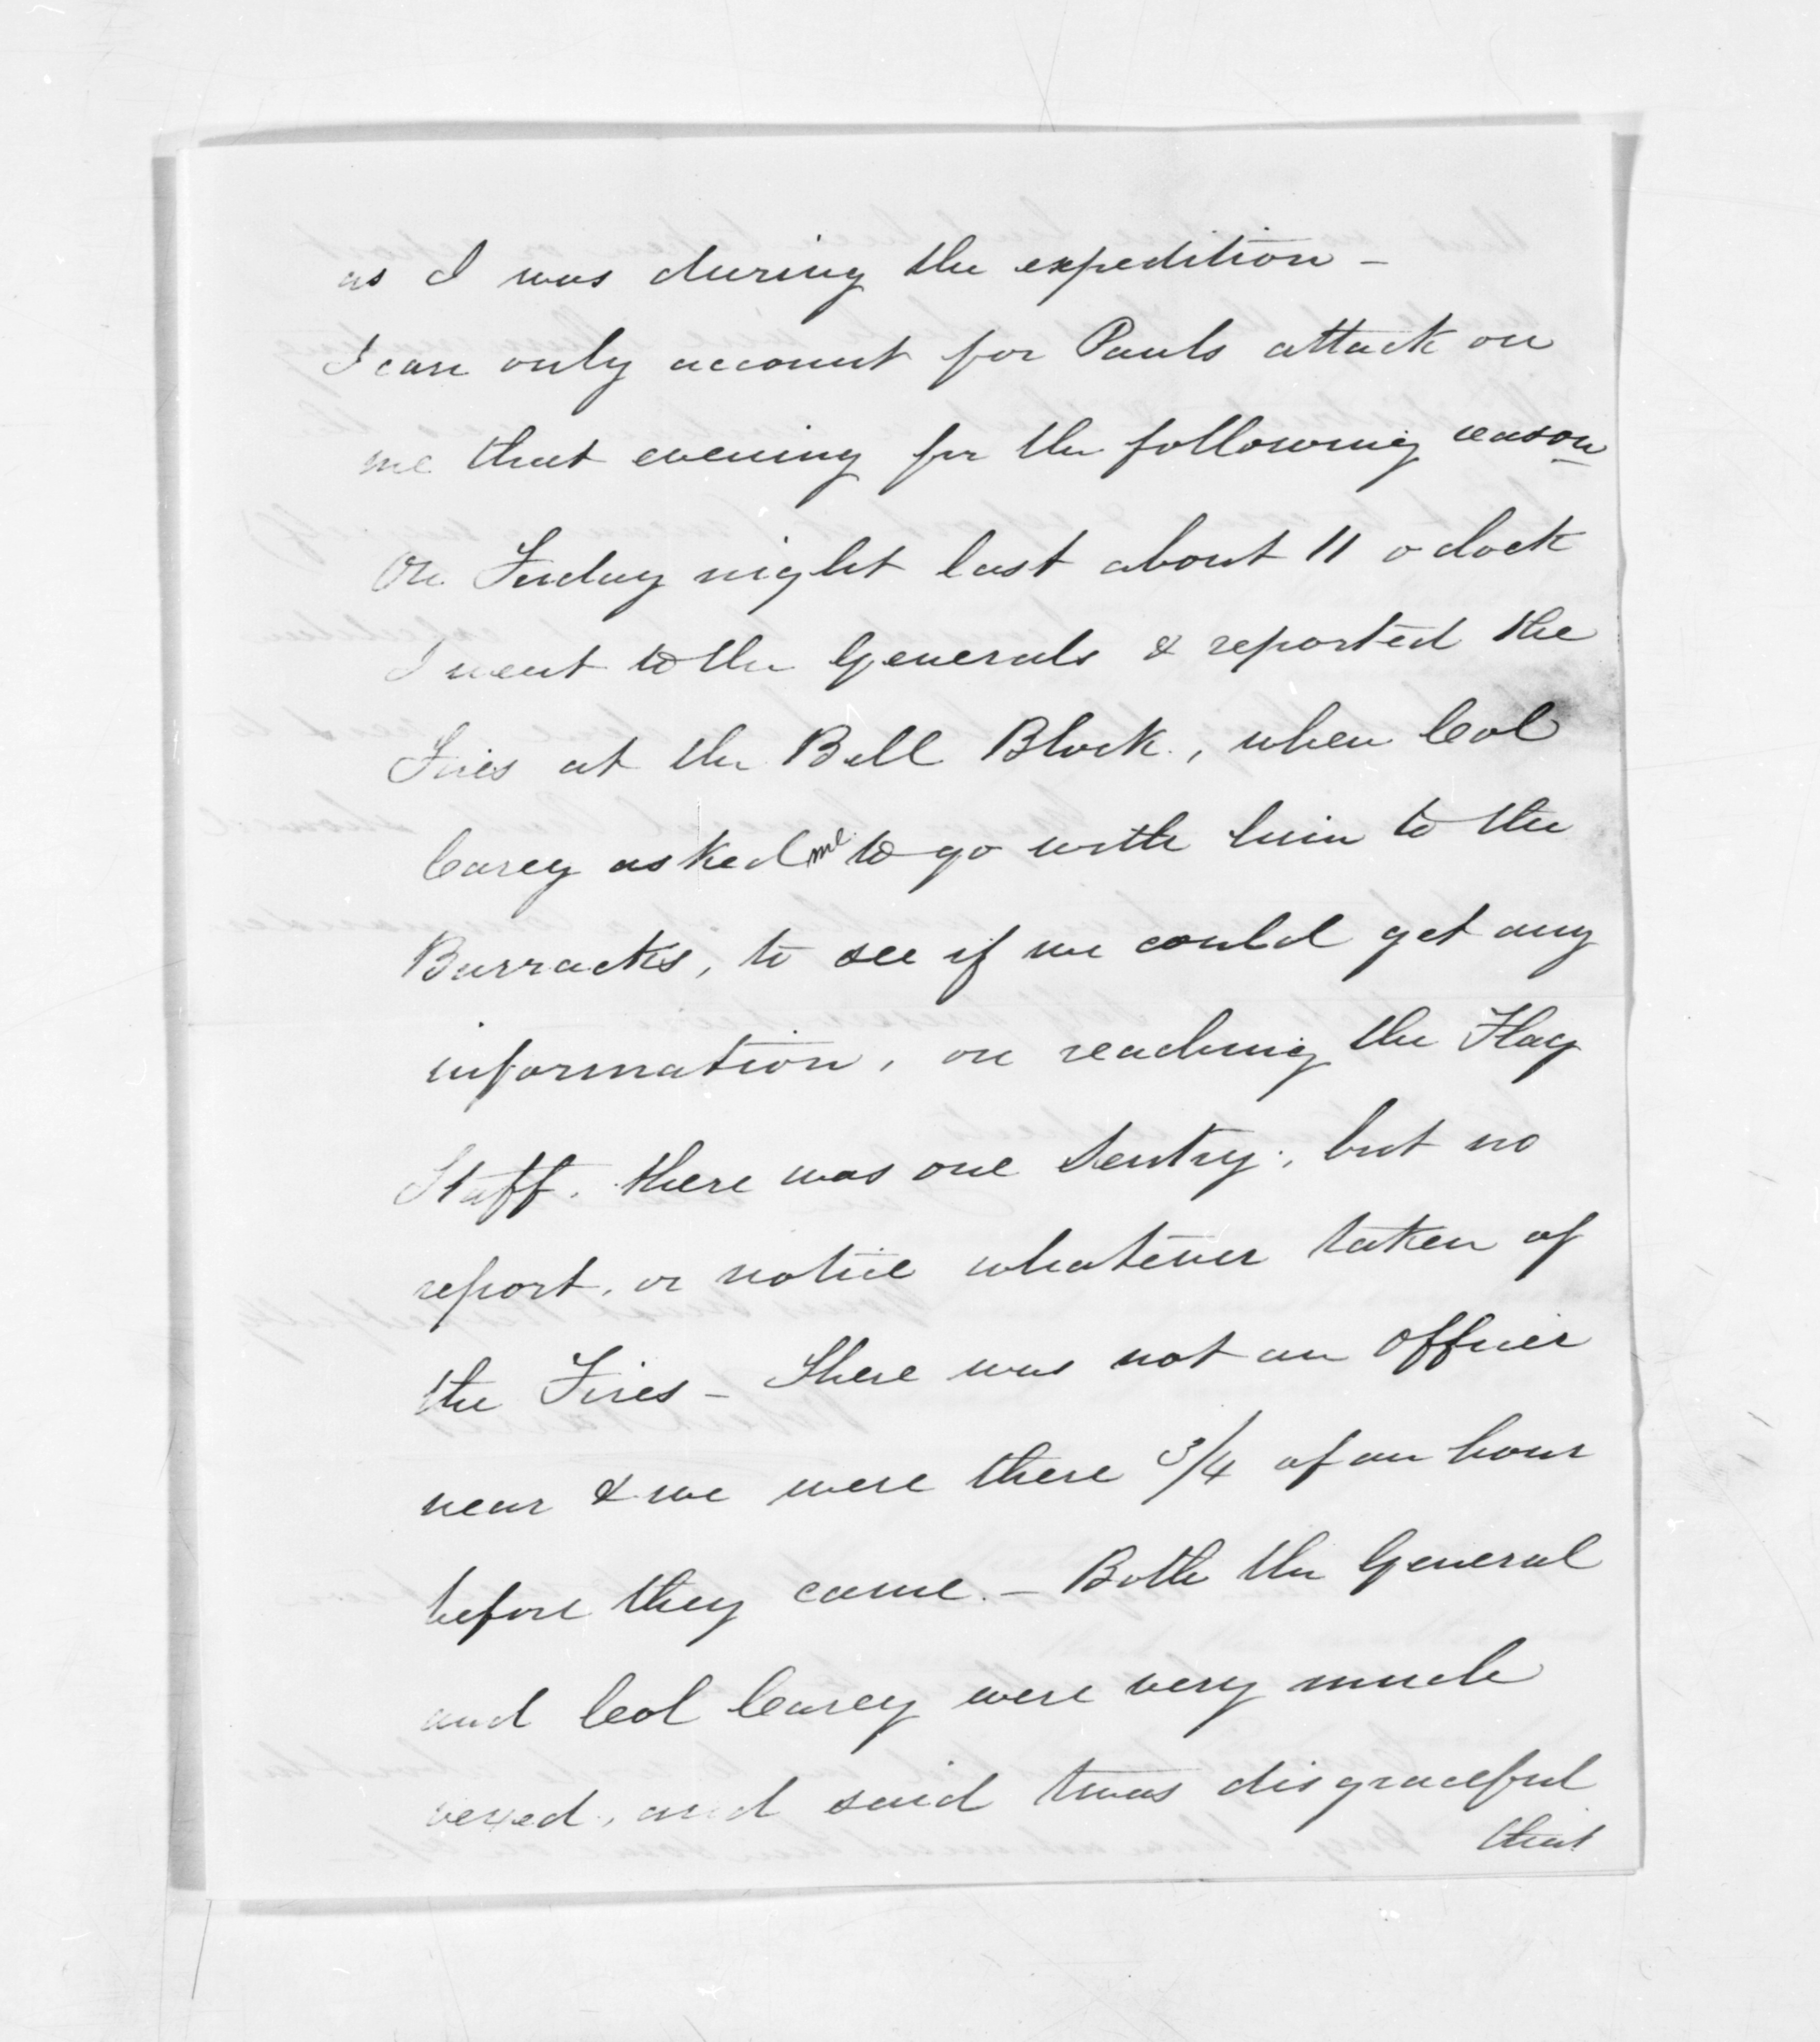 as I was during the expedition -
I can only account for Pauls attack on
me that evening for the following reason
On Friday night last about 11 o clock
I went to the Generals & reported the
Fires at the Bell Block, when Col
Carey asked me to go with him to the
Barracks, to see if we could get any
information, on reaching the Flag
Staff, there was one Sentry, but no
report, or notice whatever taken of
the Fires - There was not an Officer
near & we were there 3/4 of an hour
before they came. - Both the General
and Col Carey were very much
vexed, and said twas disgraceful
that